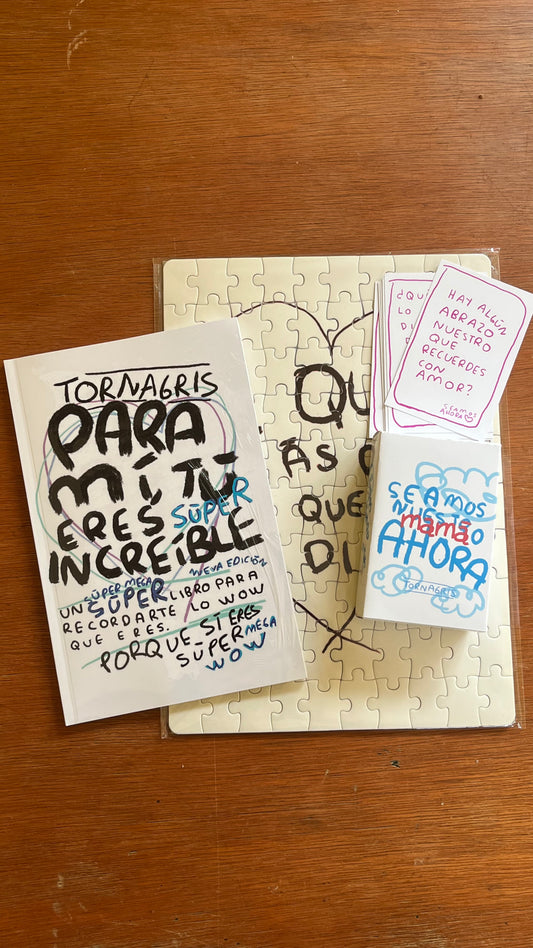 TORNAGRIS
PARA
MÍ TÚ
ERES SÚPER
INCREÍBLE
NUEVA EDICIÓN
SÚPER MEGA
UN SÚPER LIBRO PARA
RECORDARTE LO WOW
QUE ERES.
PORQUE SÍ ERES
SÚPER MEGA
WOW
QU
ÁS
QUE
DI
¿QU
LO
DI
HAY ALGÚN
ABRAZO
NUESTRO
QUE
RECUERDES
CON
AMOR?
SEAMOS
AHORA
SEAMOS
mamá
AHORA
TORNAGRIS